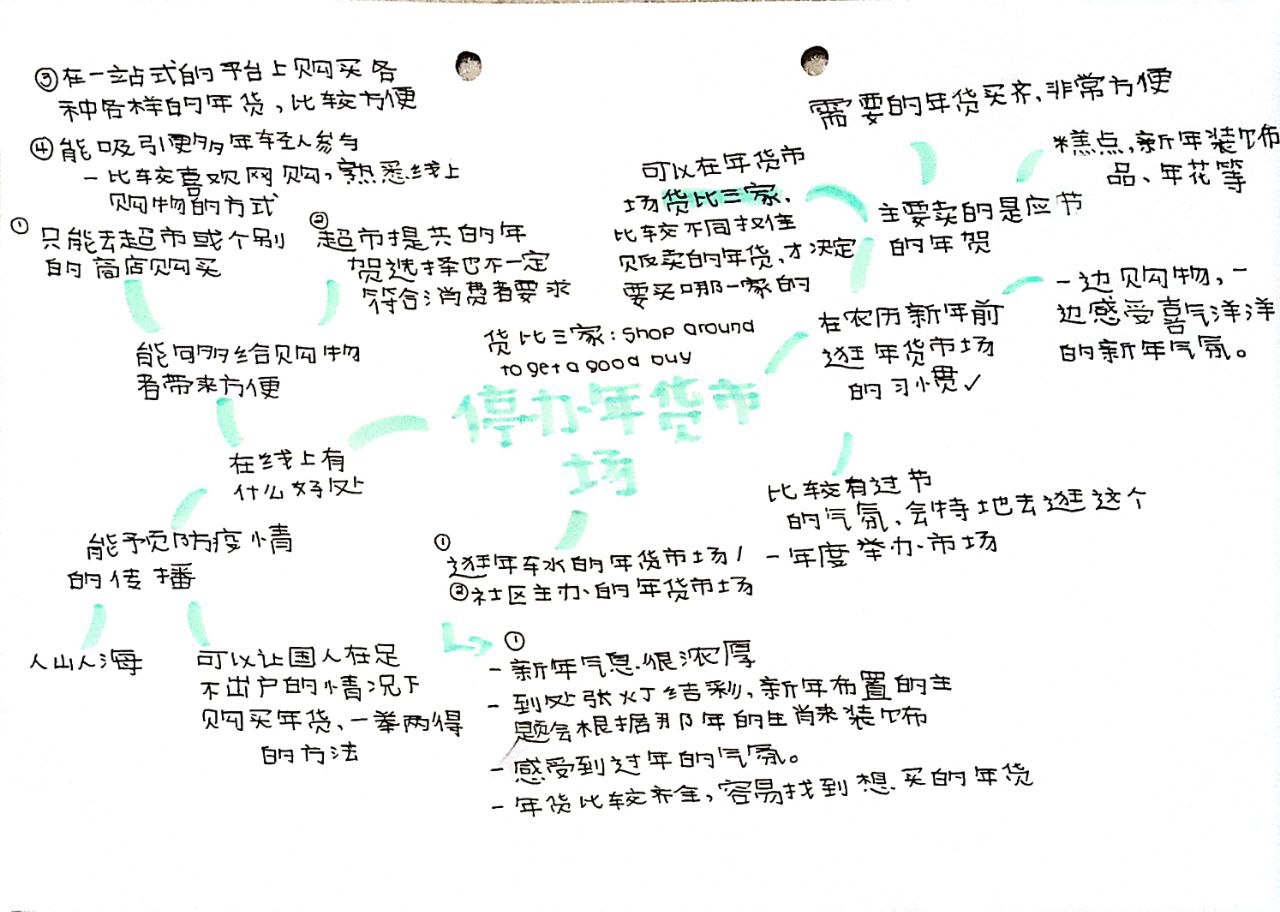 ③在一站式的平台上购买各
种各样的年货，比较方便
④能吸引更多年轻人参与
- 比较喜欢网购，熟悉线上
购物的方式
①只能去超市或个别
的商店购买
②超市提共的年
贺选择也不一定
符合消费者要求
能何多给购物
者带来方便
在线上有
什么好处
能予页防疫情
的传播
人山人海
可以让国人在足
不出户的情况下
购买年货、一举两得
的方法
需要的年货买齐、非常方便
糕点，新年装饰
品、年花等
可以在年货市
场货比三家，
比较不同摊位
贩卖的年货，才决定
要买哪一家的
主要卖的是应节
的年贺
货比三家：shop around
to get a good buy
在农历新年前
逛年货市场
的习惯✓
一边购物，一
边感受喜气洋洋
的新年气氛。
停办年货市
场
比较有过节
的气氛，会特地去逛这个
一年度举办市场
①逛牛车水的年货市场/
②社区主办的年货市场
①
- 新年气息很浓厚
- 到处张灯结彩，新年布置的主
题会根据那年的生肖来装饰
- 感受到过年的气氛。
- 年货比较齐全，容易找到想买的年货